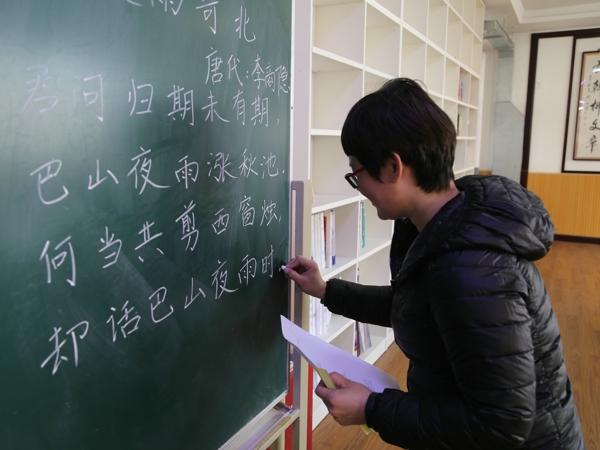 夜雨寄北
唐代:李商隐
君问归期未有期,
巴山夜雨涨秋池.
何当共剪西窗烛,
却话巴山夜雨时.